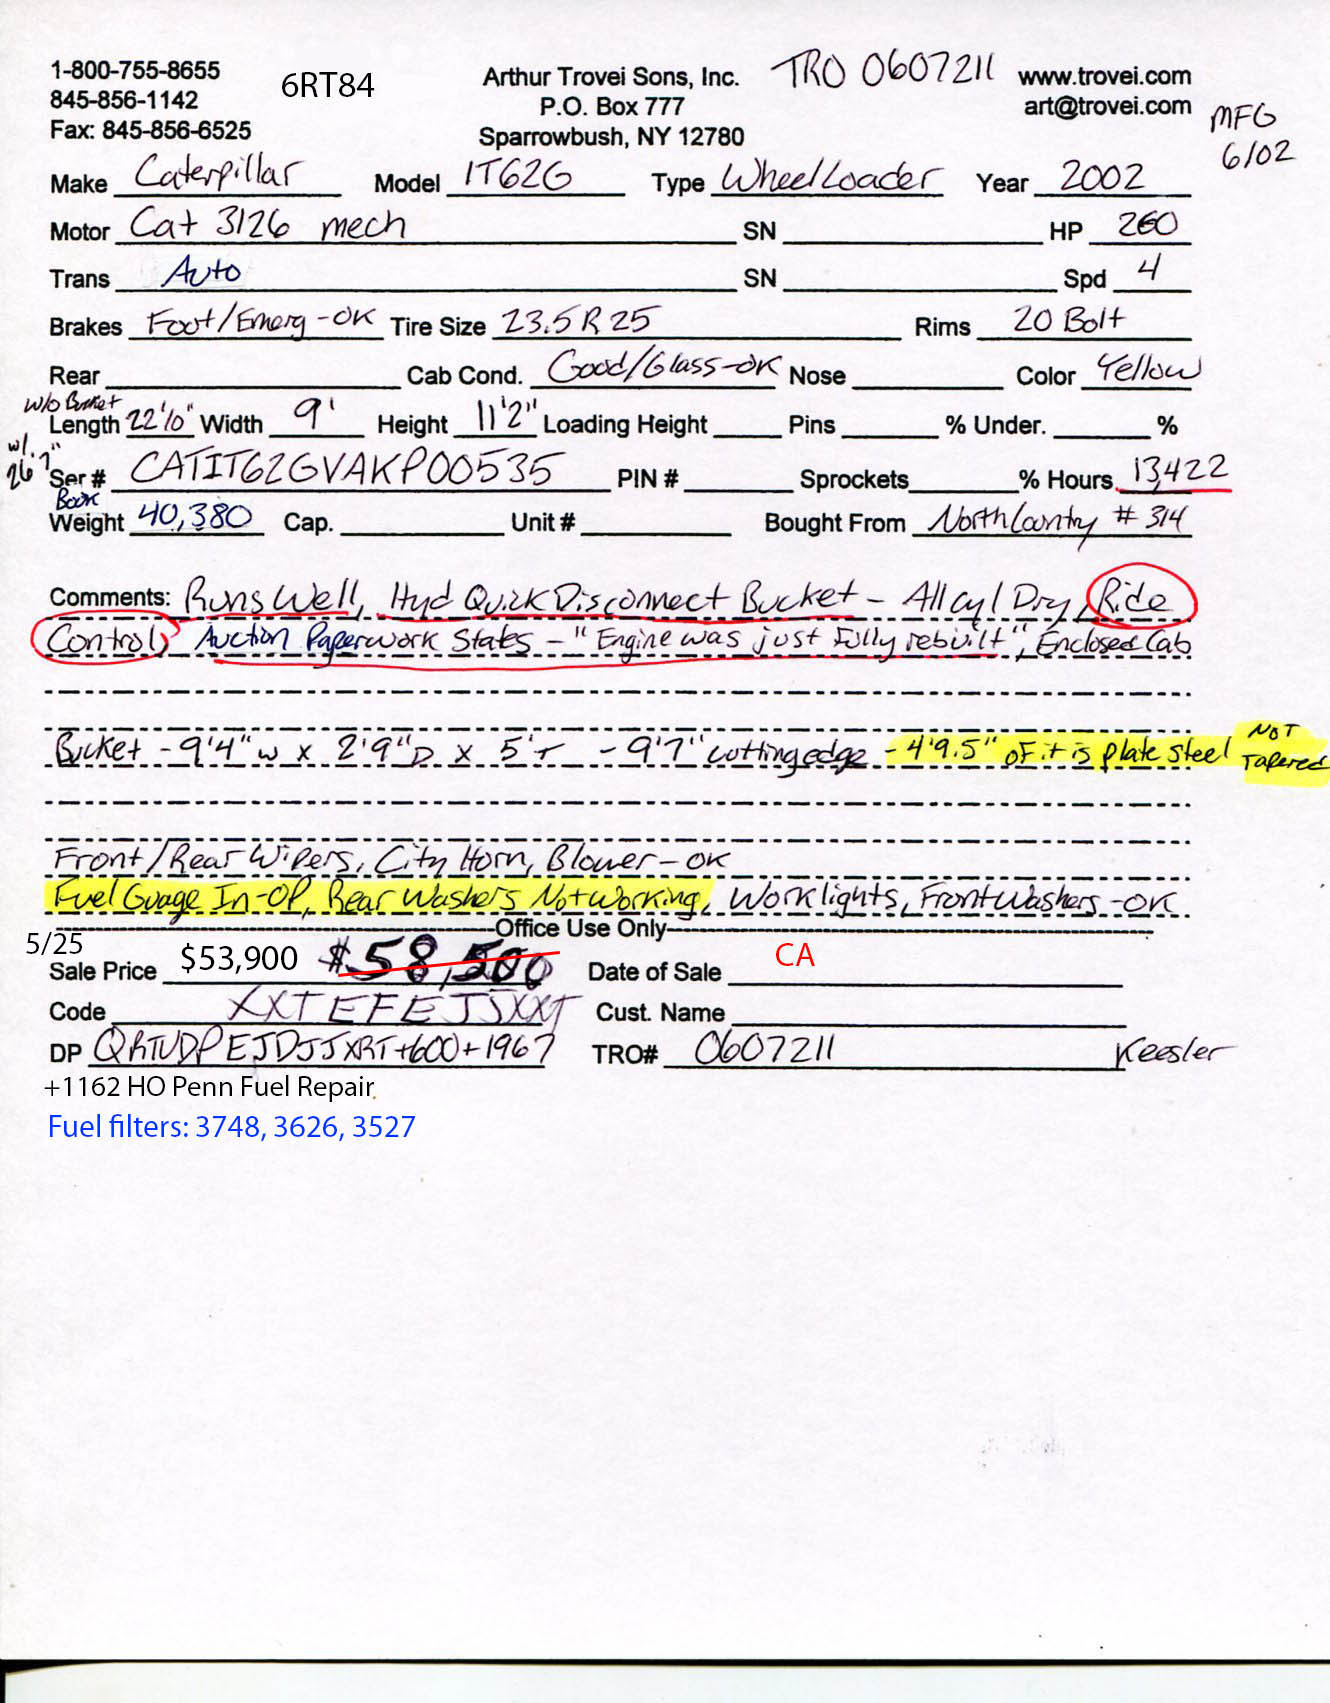 1-800-755-8655 6RT84 Arthur Trovei Sons, Inc. TRO 0607211 www.trovei.com
845-856-1142 P.O. Box 777 art@trovei.com MFG
Fax: 845-856-6525 Sparrowbush, NY 12780 6/02
Make Caterpillar Model IT62G Type Wheel Loader Year 2002
Motor Cat 3126 mech SN HP 260
Trans Auto SN Spd 4
Brakes Foot/Emerg-OK Tire Size 23.5R25 Rims 20 Bolt
Rear Cab Cond. Good/Glass-OK Nose Color Yellow
w/o Bucket
Length 22'10" Width 9' Height 11'2" Loading Height Pins % Under. %
w/. 26'7"
Ser # CATIT62GVAKP00535 PIN # Sprockets % Hours 13,422
Book
Weight 40,380 Cap. Unit # Bought From North Country # 314
Comments: Runs Well, Hyd Quick Disconnect Bucket - All cyl Dry, Ride
Control, Auction Paperwork States - "Engine was just fully rebuilt", Enclosed Cab
Bucket - 9'4" w x 2'9" D x 5' T - 9'7" cutting edge - 4'9.5" of it is plate steel NOT Tapered
Front/Rear Wipers, City Horn, Blower - OK
Fuel Guage In-OP, Rear Washers Not Working, Worklights, Front Washers - OK
Office Use Only
5/25
Sale Price $53,900 $58,500 Date of Sale CA
Code XXTEFEJJXXT Cust. Name
DP QRTUDPEJDJJXRT+600+1967 TRO# 0607211 Keesler
+1162 HO Penn Fuel Repair
Fuel filters: 3748, 3626, 3527